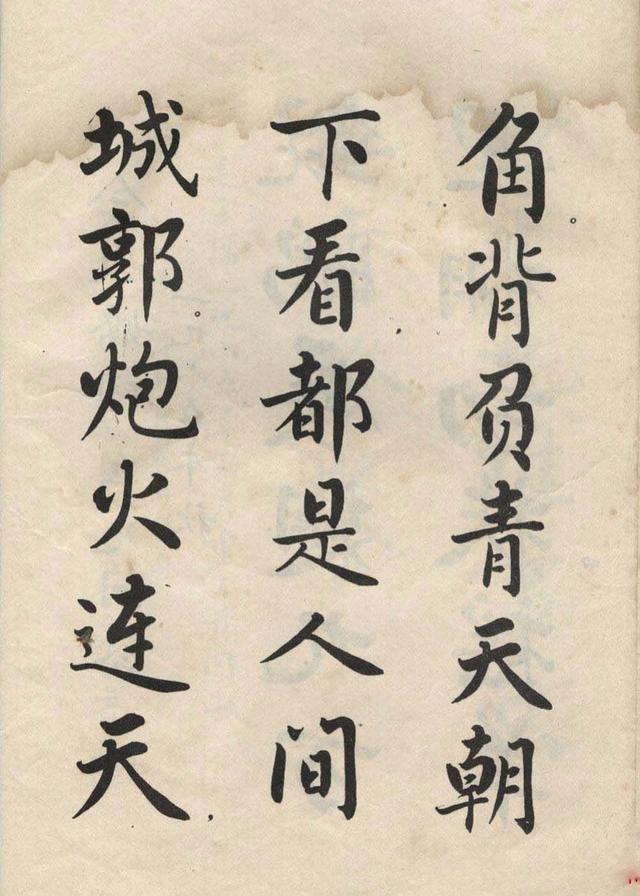 角背负青天朝
下看都是人间
城郭炮火连天